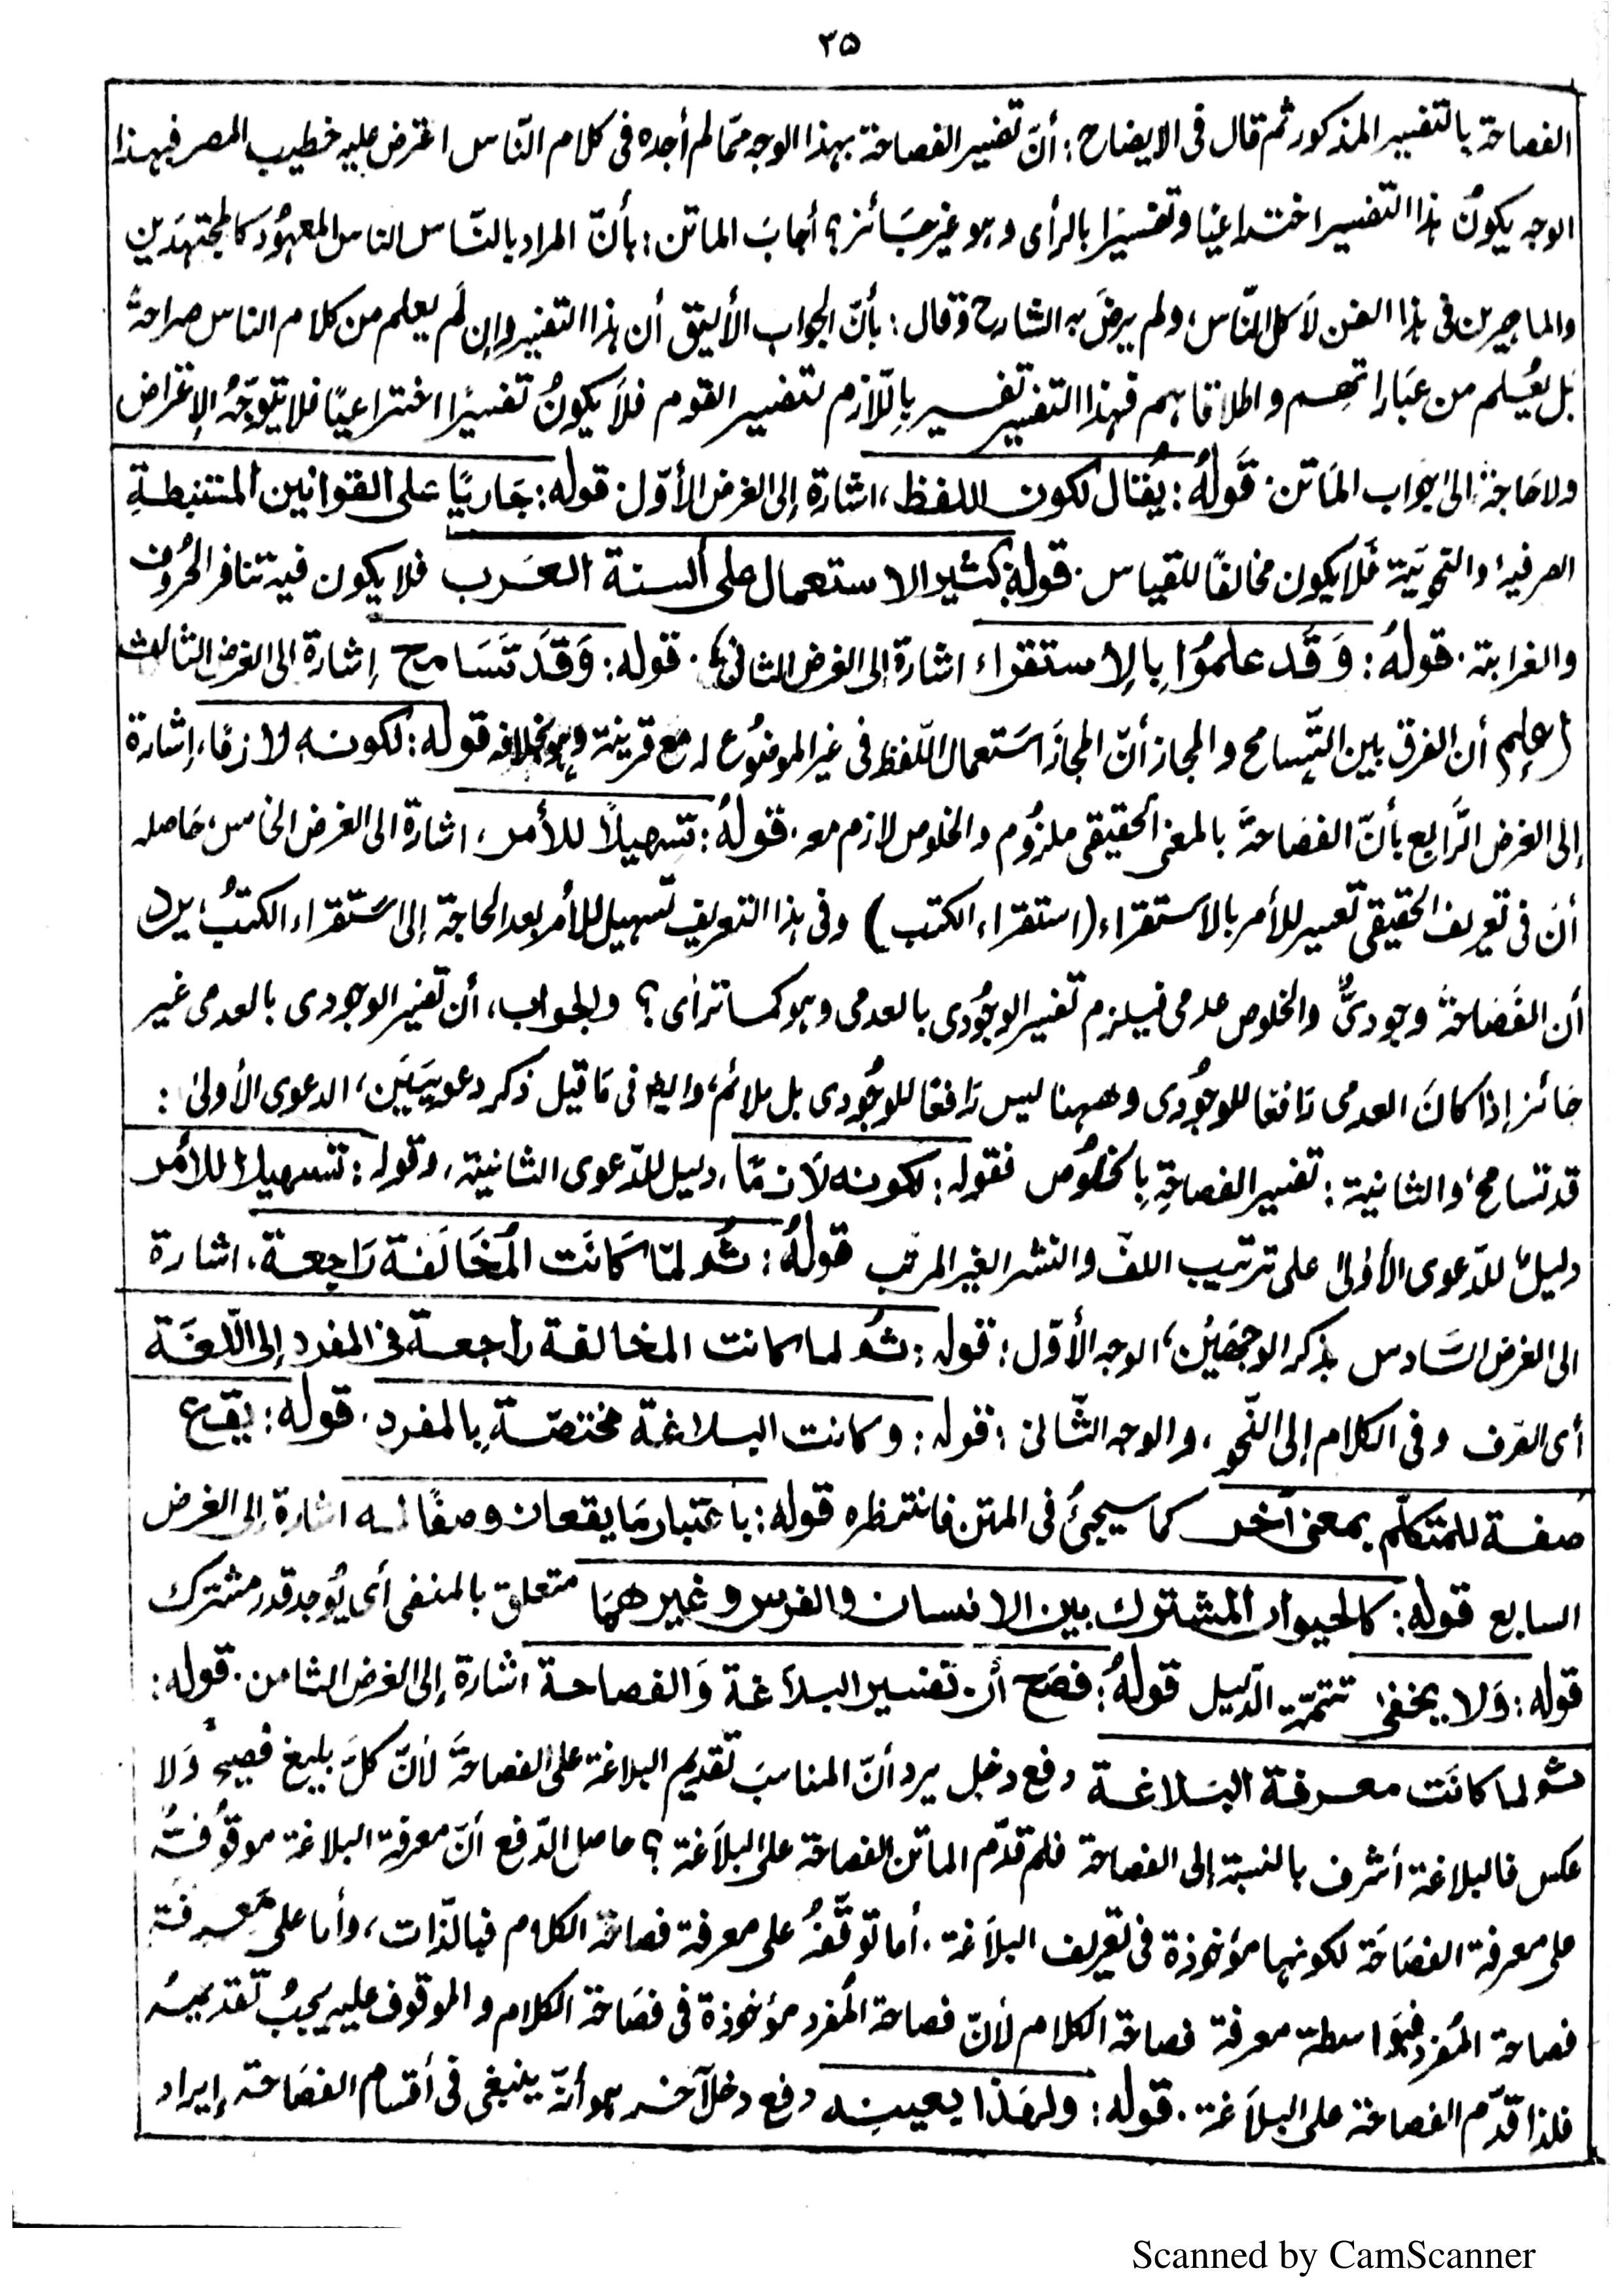 ٣٥
الفصاحة بالتفسير المذكور ثم قال فى الايضاح: أنّ تفسير الفصاحة بهذا الوجه ممّا لم أجده فى كلام النّاس اعترض عليه خطيب المصر فبهذا
الوجه يكونُ هذا التفسير اختراعيًا وتفسيرًا بالرأى وهو غير جَائز؟ أجابَ الماتن: بأنّ المراد بالنّاس الناس المعهوُد كالمجتهدَين
والماهرين فى هذا الفن لاَ كل النّاس، ولم يرضَ به الشارح وقال: بأنّ الجواب الأليق أن هذا التفسير وإن لَم يعلم من كلام الناس صراحةً
بَل يُعلم من عبَاراتهم واطلاقاتهم فهذا التفسير تفسير باِللّازم لتفسير القوم فلاَ يكونُ تفسيرًا اختراعيًا فلا يتوَجّهُ الإعتراض
ولاحَاجةَ إلى جواب المَاتن. قَولهُ: يُقال لكون اللفظ، اشارة إلى الغرض الأوّل. قوله: جَاريًا عَلى القوانين المستنبطةِ
الصرفية والنحويَة فَلا يكون مخالفًا للقياس. قوله: كثير الاستعمال على ألسنة العَرب فلا يكون فيه تنافر الحرُوف
والغرابة. قولهُ: وَقَد علموُا بِالإستقراء اشارة إلى الغرض الثانى. قوله: وَقَد تَسَامح إشارة إلى الغرض الثالث
(إعلم) أن الفرق بلين التّسامح والمجاز أنّ المجازَ اسَتعمال اللّفظ فى غير الموضوُع له مع قرينة وهو بخلافه قوله: لكونه لازمًا، إشارة
إلى الغرض الرَّابع بأنّ الفصَاحةَ بالمعنى الحقيقى ملزوُم والخلوص لازم معه. قولهُ: تسهيلاً للأمر، اشارة الى الغرض الخامس، حَاصله
أنَ فى تعريف الحقيقى تعسير للأمر بالاستقراء (استقراء الكتب) وفى هذا التعريف تسهيل للأمر بعد الحاجة إلى اسَتقراء الكتبُ، يرد
أن الفَصَاحةَ وجودىٌّ والخلوص عدمى فيلزم تفسير الوجوُدى بالعدمى وهو كما ترأى؟ والجواب، أن تفسير الوجودى بالعدمى غير
جَائز إذا كانَ العدمى رَافعا للوجوُدى وههنا ليس رَافعًا للوجُودى بل ملائم، وايضِ فى مَا قيل ذكر دعوييَين، الدعوى الأولىٰ:
قد تسامح، والثانية: تفسير الفصاحةِ بِالخلوُص فقوله: لكونه لاَزمًا، دليل للدّعوى الثانية، وقوله: تسهيلا للأمر
دليلٌ للدّعوى الأولىٰ على ترتيب اللفّ والنشر الغير المرتب قولهُ: ثُم لمّا كَانَت المُخَالَفة رَاجعة، اشارة
الى الغرض السَّادس بذكر الوجهَين، الوجه الأوّل: قوله: ثُم لما كانت المخالفة راجعة فى المفرد إلى اللّغَة
أى الصَرف وفى الكلام إلى النّحو، والوجه الثّانى: قوله: وكانت البلاغة مختصّة بِالمفرد. قوله: يقع
صفة للمتكلّم بمعنى آخر كما سيجئُ فى المتن فانتظره قوله: باعتبار مَا يقعان وصفًا له اشارة إلى الغرض
السابع قوله: كالحيوان المشترك بين الانسان والفرس وغيرهمَا متعلق بالمنفى أى يُوجد قدر مشترك
قوله: وَلا يخفىٰ تتمّة الدّليل قولهُ: فصَح أن تفسير البلاَغة وَالفصاحة اشارة إلى الغرض الثامن. قوله:
ثم لما كانَت معرفة البَلاغة دفع دخل يرد أنّ المناسبَ تقديم البلاغة على الفصاحةَ لأنّ كلَّ بليغ فصيح وَلا
عكس فالبلاغة أشرف بالنسبة إلى الفصاحة فلم قدّم الماتن الفصاحة على البلاَغة؟ حاصل الدّفع أنّ معرفة البلاغة موقوُفةُ
على معرفة الفصَاحَة لكونها مؤخوذة فى تعريف البلاَغة. أما توَقّفهُ على معرفة فصاحَة الكلام فبالذّات، وأما على مَعرفة
فصاحة المُفرد فبوَاسطة معرفة فصاحة الكلام لأنّ فصاحة المُفرد مؤخوذة فى فصَاحة الكلام والموقوف عليه يجبُ تقديمهُ
فلذا قدّم الفصاحة على البلاَغة. قوله: ولهَذا بعينه دفع دخل آخر هو أنّه ينبغى فى أقسام الفصَاحة إيراد
Scanned by CamScanner